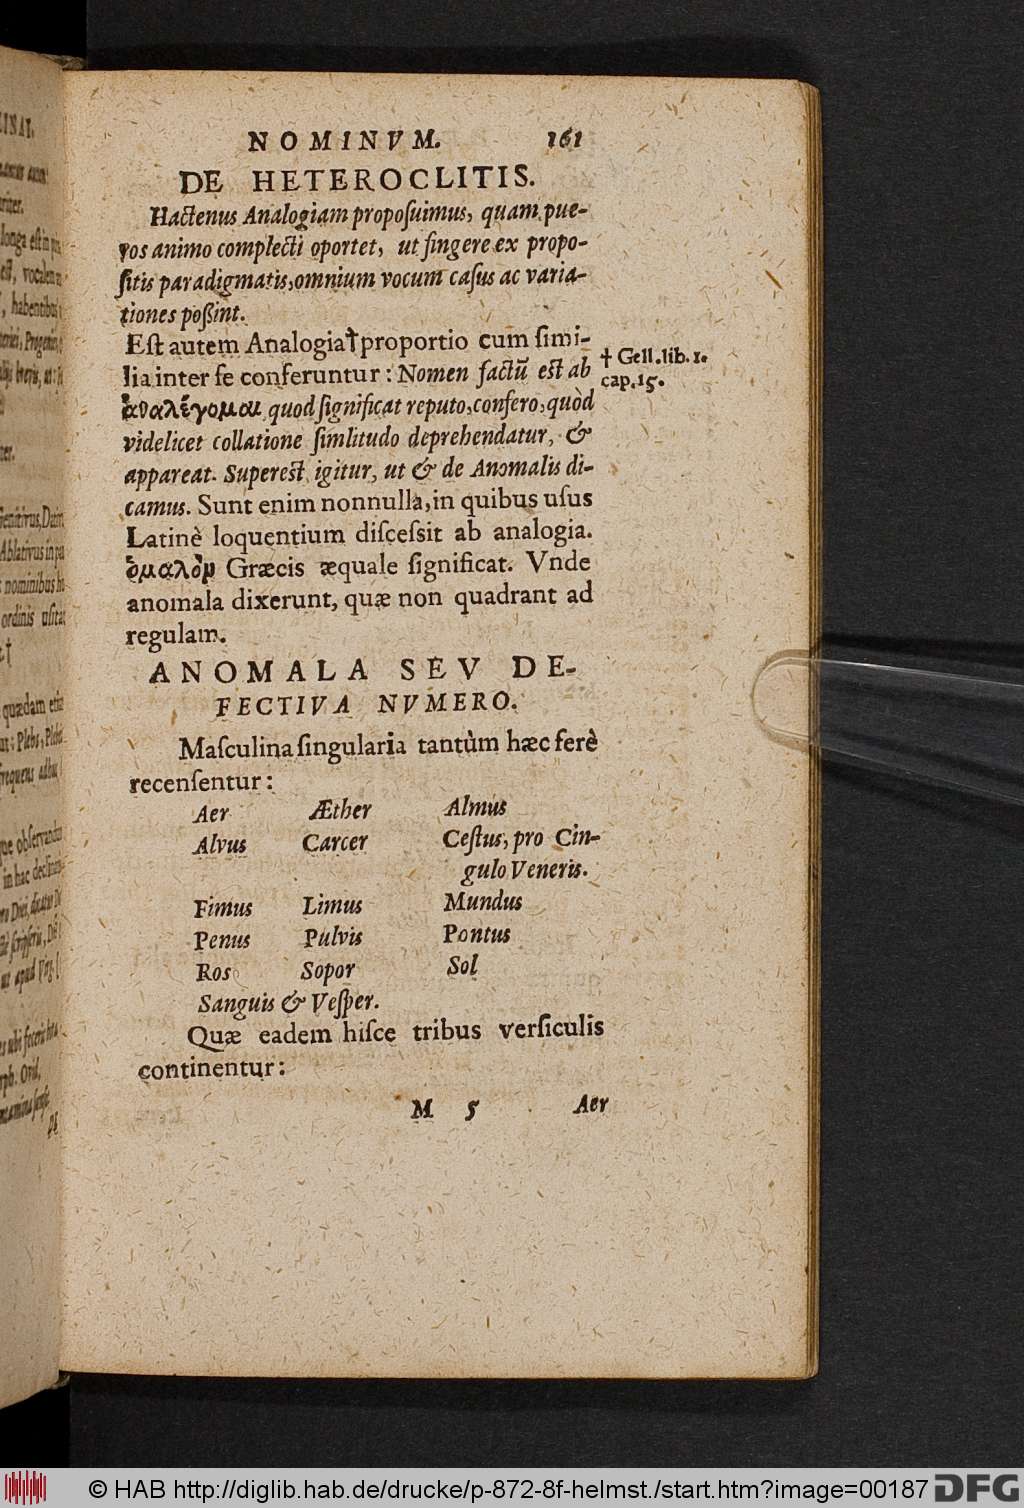 NOMINVM. 161
DE HETEROCLITIS.
Hactenus Analogiam proposuimus, quam pue-
ros animo complecti oportet, ut fingere ex propo-
sitis paradigmatis, omnium vocum casus ac varia-
tiones poßint.
Est autem Analogia † proportio cum simi-
lia inter se conferuntur: Nomen factũ est ab
† Gell. lib. 1.
cap. 15.
ἀναλέγομαι quod significat reputo, confero, quòd
videlicet collatione simlitudo deprehendatur, &
appareat. Superest igitur, ut & de Anomalis di-
camus. Sunt enim nonnulla, in quibus usus
Latinè loquentium discessit ab analogia.
ὁμαλὸν Græcis æquale significat. Vnde
anomala dixerunt, quæ non quadrant ad
regulam.
ANOMALA SEV DE-
FECTIVA NVMERO.
Masculina singularia tantùm hæc ferè
recensentur:
Aer Æther Almus
Alvus Carcer Cestus, pro Cin-
gulo Veneris.
Fimus Limus Mundus
Penus Pulvis Pontus
Ros Sopor Sol
Sanguis & Vesper.
Quæ eadem hisce tribus versiculis
continentur:
M 5 Aer
© HAB http://diglib.hab.de/drucke/p-872-8f-helmst./start.htm?image=00187 DFG